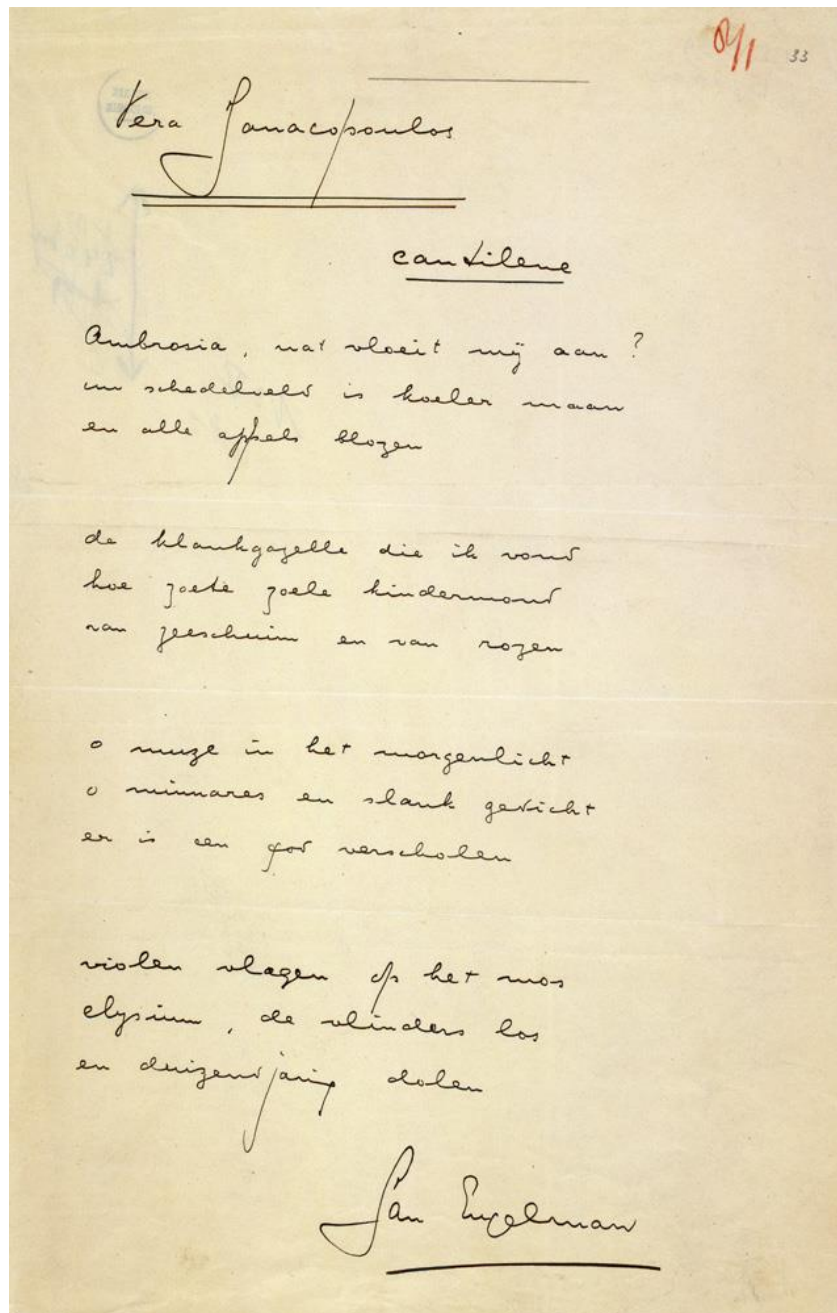 8/1 33
Vera Janacopoulos
cantilene
Ambrosia, wat vloeit mij aan?
uw schedelveld is koeler maan
en alle appels blozen
de klankgazelle die ik vond
hoe zoete zoele kindermond
van zeeschuim en van rozen
o muze in het morgenlicht
o minnares en slank gedicht
er is een god verscholen
violen vlagen op het mos
elysium, de vlinders los
en duizendjarig dolen
Jan Engelman